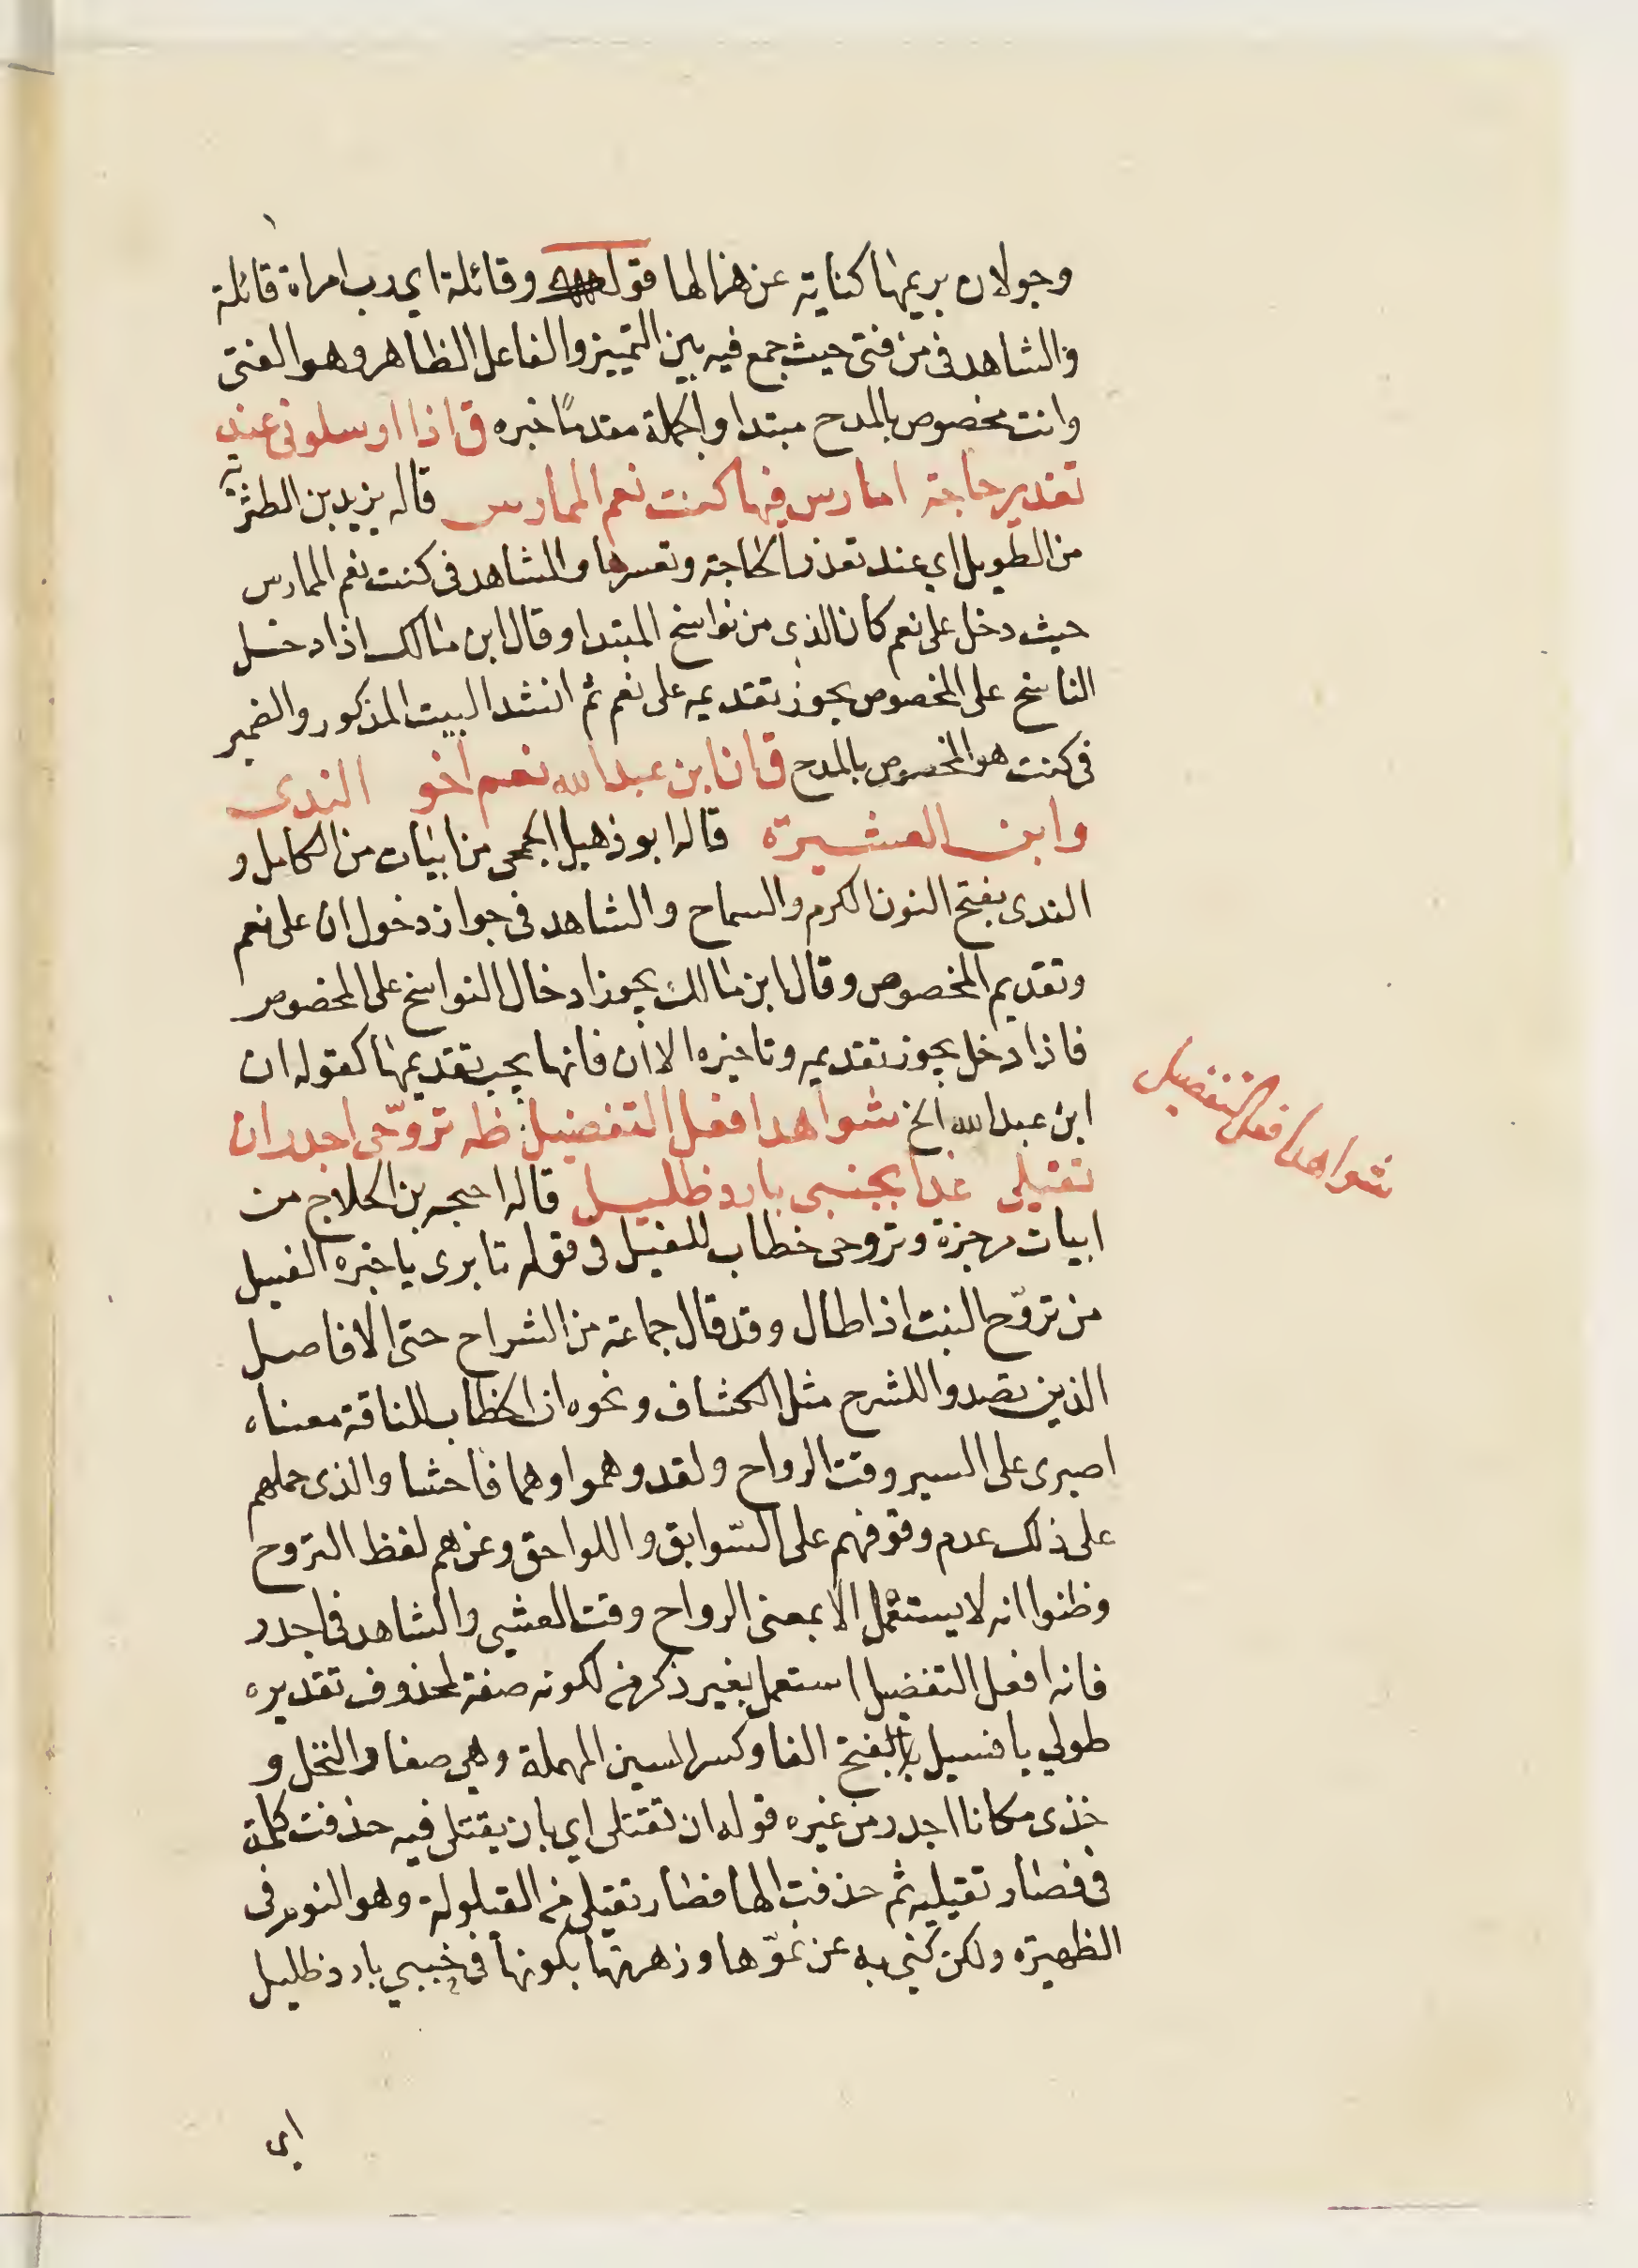 وجولان بريمها كناية عن هزالها قوله وقائلة اي رب امراة قائلة
والشاهد في من فتى حيث جمع فيه بين التمييز والفاعل الظاهر وهو الفتى
وانت مخصوص بالمدح مبتدا والجملة مقدمًا خبره ق اذا ارسلوني عند
تقدير حاجة امارس فيها كنت نعم الممارس قاله يزيد بن الطثرية
من الطويل اي عند تعذر الحاجة وتعسرها والشاهد في كنت نعم الممارس
حيث دخل على نعم كان الذي من نواسخ المبتدا وقال ابن مالك اذا دخل
الناسخ على المخصوص يجوز تقديمه على نعم ثم انشد البيت المذكور والضمير
في كنت هو المخصوص بالمدح ق ان ابن عبد الله نعم اخو الندى
وابن العشيرة قاله ابو ذهبل الجمحى من ابيات من الكامل و
الندى بفتح النون الكرم والسماح والشاهد في جواز دخول ان على نعم
وتقديم المخصوص وقال ابن مالك يجوز ادخال النواسخ على المخصوص
فاذا دخل يجوز تقديمه وتاخيره الا ان فانها يجب تقديمها كقوله ان
ابن عبد الله الخ شواهد افعل التفضيل ظه تروّحى اجدر ان
تقيلى غدا بجنبى بارد ظليل قاله احيحه بن الحلاج من
ابيات مرجزة وتروحى خطاب للفيل في قوله تابرى يا خيره الفسيل
من تروّح النبت اذا طال وقد قال جماعة من الشراح حتى الافاصل
الذين تصدوا للشرح مثل الكشاف ونحوه ان الخطاب للناقة معناه
اصبرى على السير وقت الرواح ولقد وهموا وهما فاحشا والذى حملهم
على ذلك عدم وقوفهم على السّوابق واللواحق وغرهم لفظ التروح
وظنوا انه لا يستعمل الا بمعنى الرواح وقت العشي والشاهد في اجدر
فانه افعل التفضيل استعمل بغير ذكر من لكونه صفة لمحذوف تقديره
طولي يا فسيل بفتح الفا وكسر السين المهملة وهي صغار النخل و
خذى مكانا اجدر من غيره قوله ان تقتلى اي بان يقتلى فيه حذفت كلمة
في فصار تقيليه ثم حذفت الها فصار تقيلى من القيلولة وهو النوم في
الظهيرة ولكن كني به عن نموّها وزهرتها بكونها في خببي بارد ظليل
اي
شواهد افعل التفضيل